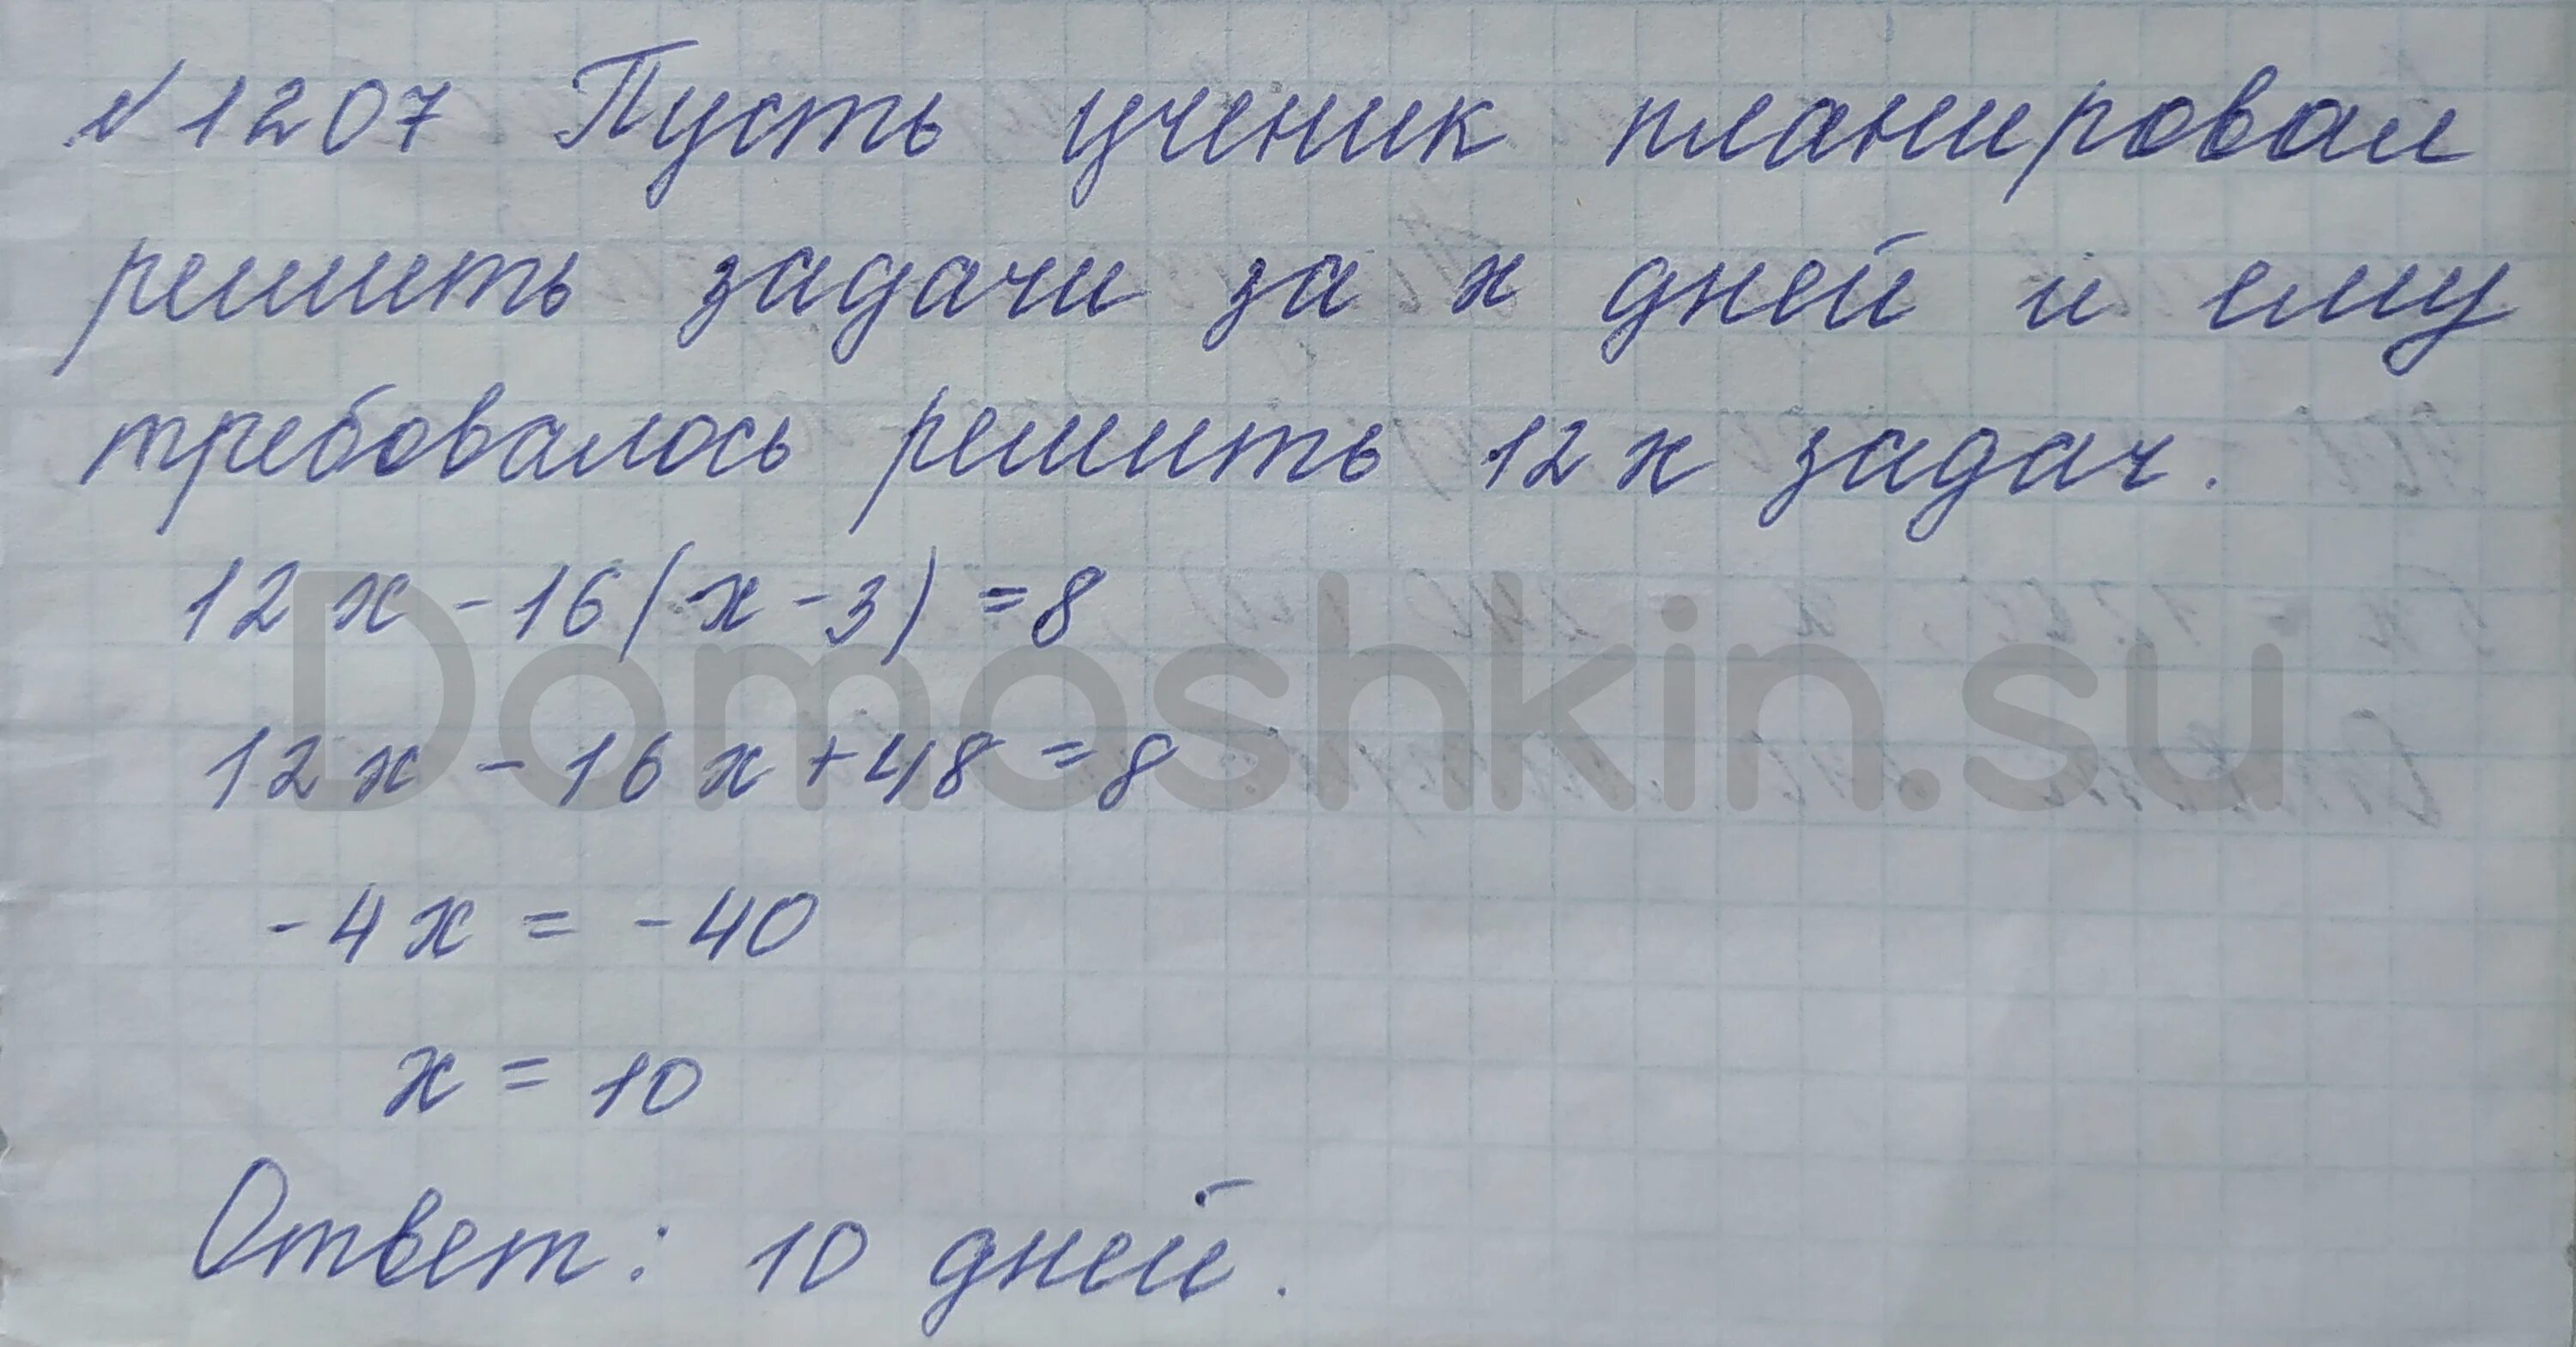 №1207 Пусть ученик планировал
решить задачи за x дней и ему
требовалось решить 12x задач.
12x - 16(x - 3) = 8
Domoshkin.su
12x - 16x + 48 = 8
-4x = -40
x = 10
Ответ: 10 дней.